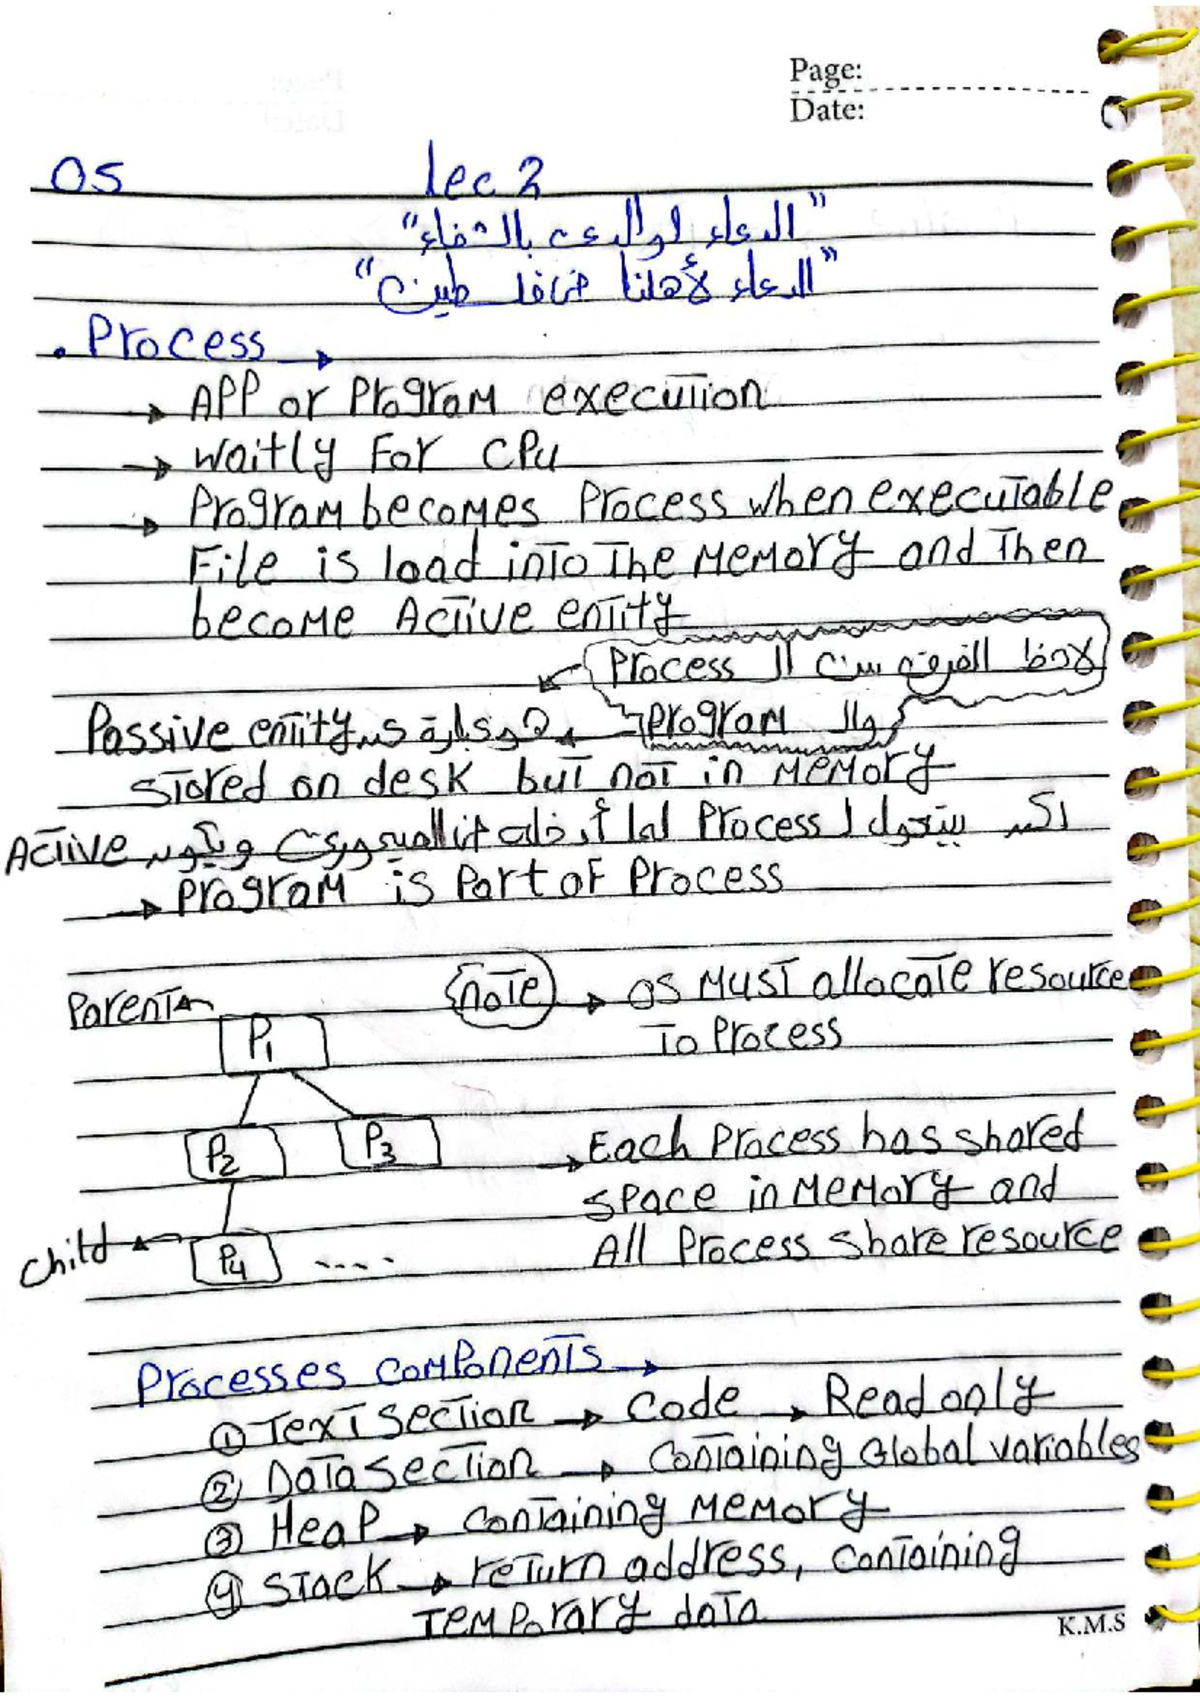 Page:
Date:
OS lec 2
"الدعاء لوالدى بالشفاء"
"الدعاء لأهلنا فى فلسطين"
. Process →
→ APP or Program execution
→ waitly For CPU
→ Program becomes Process when executable
File is load into The Memory and Then
become Active entity
لاحظ الفرق بين ال Process
وال Program
هو عبارة عن Passive entity
stored on desk but not in Memory
لكن بيتحول ل Process لما أدخله فى الميمورى ويكون Active
→ Program is Part of Process
Parent
note → OS Must allocate resource
To Process
P1
P2 P3
→ Each Process has shared
space in Memory and
All Process share resource
child
P4 ....
Processes components →
① Text section → Code → Read only
② Data section → Containing Global variables
③ Heap → Containing Memory
④ Stack → return address, Containing
Temporary data
K.M.S